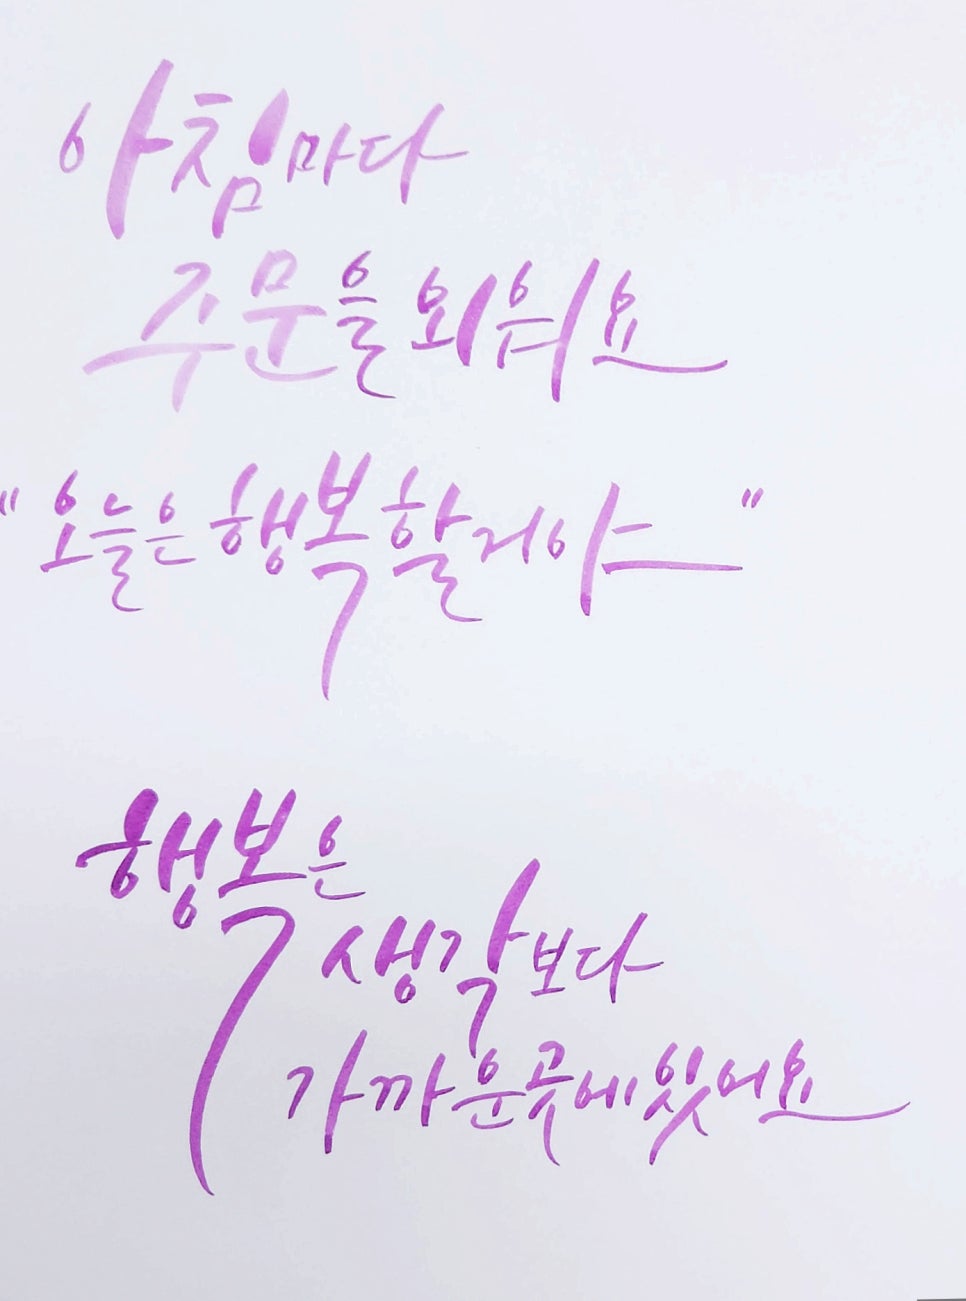 아침마다
주문을 외워요
"오늘은 행복할거야"
행복은
생각보다
가까운곳에있어요